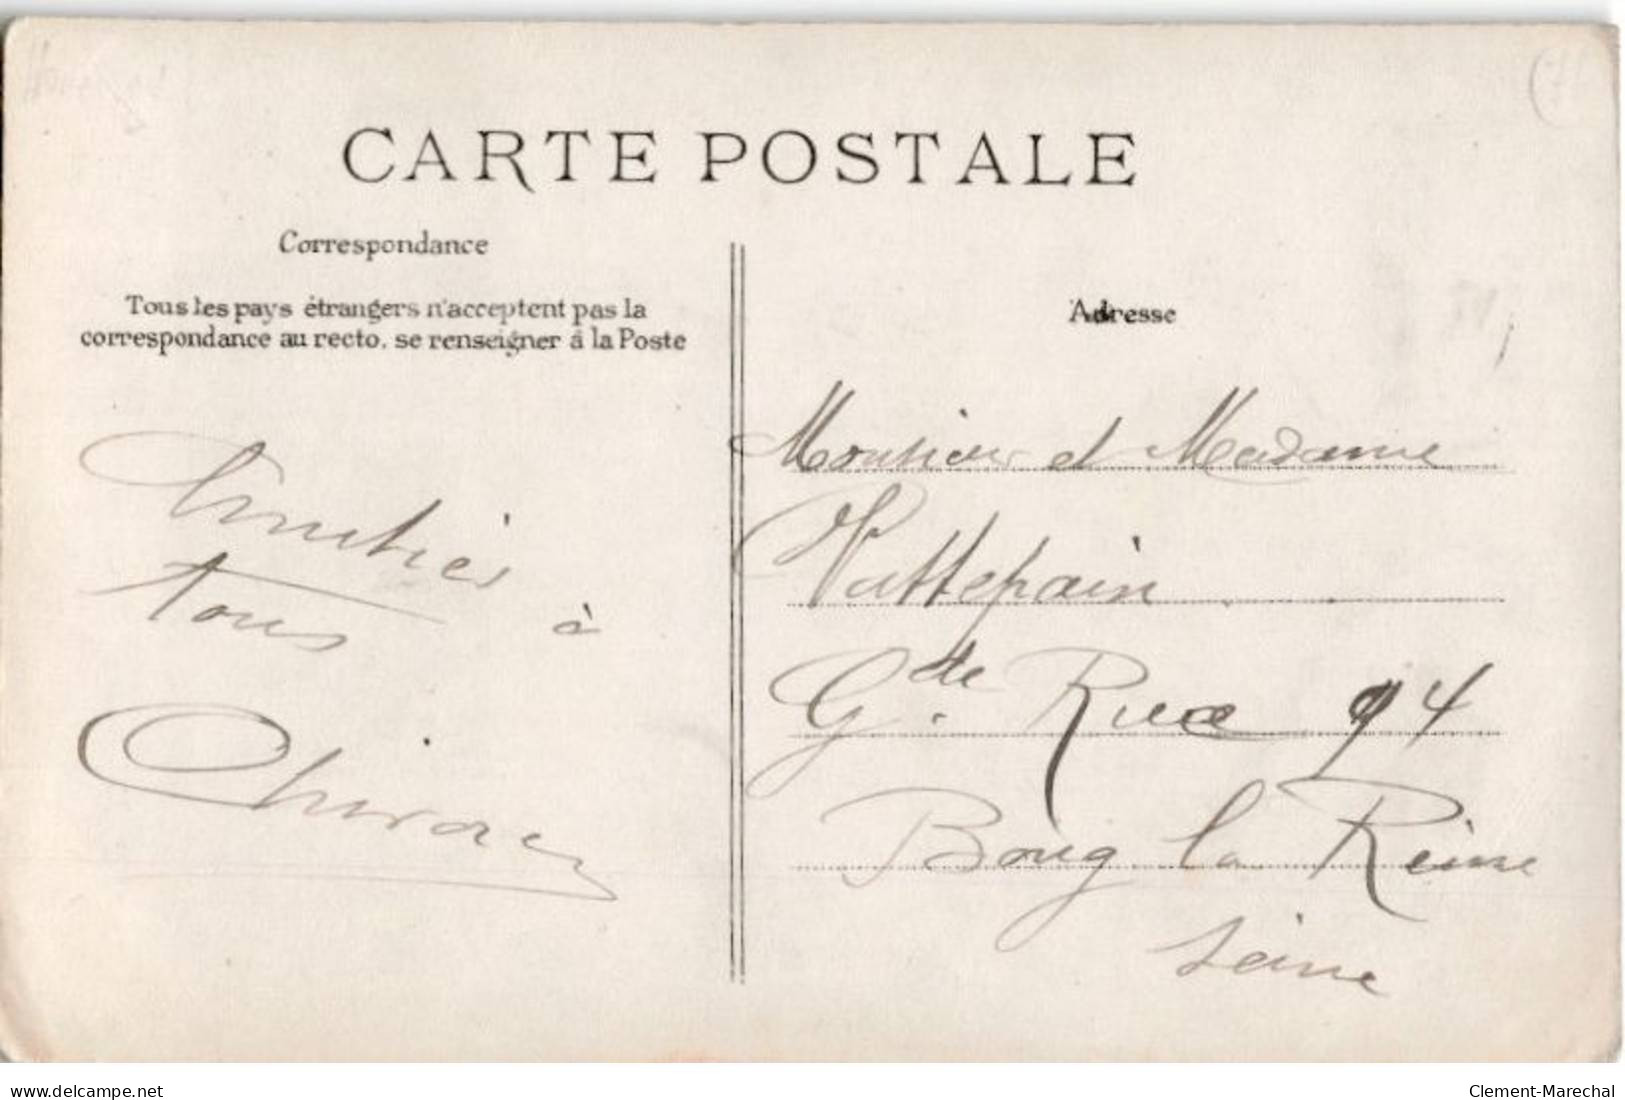 CARTE POSTALE
Correspondance
Tous les pays étrangers n'acceptent pas la
correspondance au recto, se renseigner à la Poste
Amitiés
à
tous
Adresse
Monsieur et Madame
Vattepain
Gde. Rue 94
Bourg la Reine
Seine
delcampe.net
Clement-Marechal